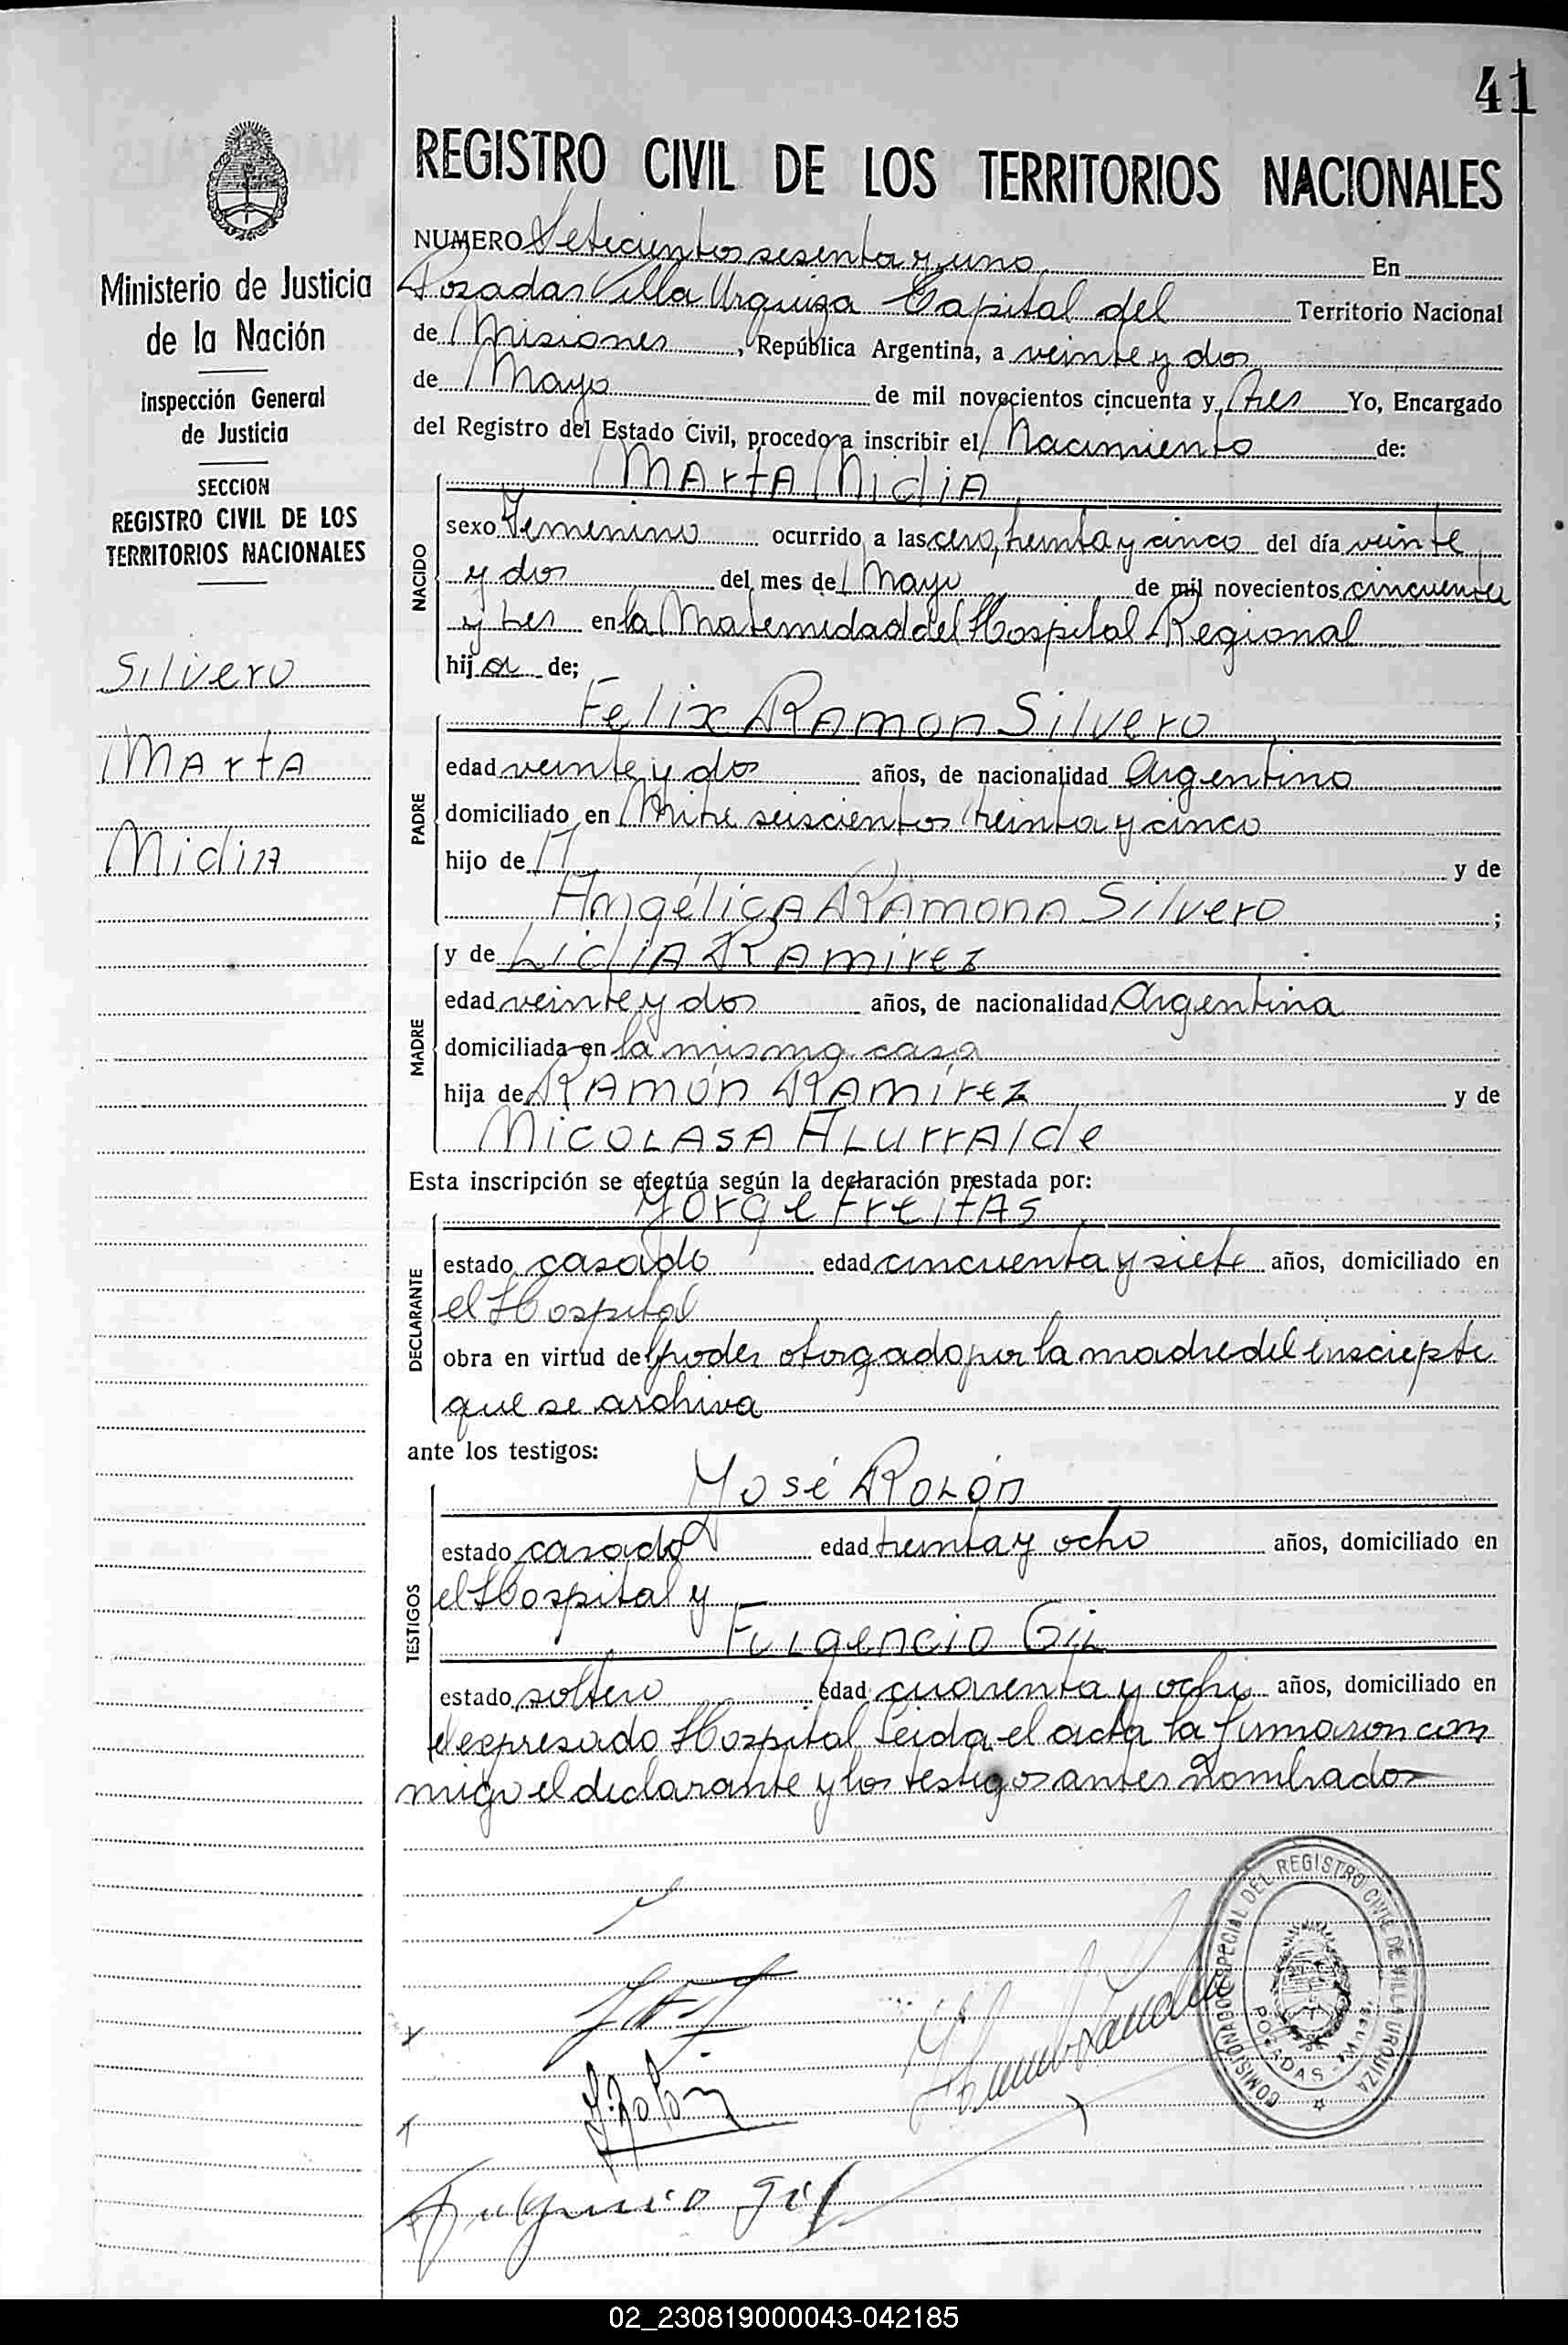 41
REGISTRO CIVIL DE LOS TERRITORIOS NACIONALES
Ministerio de Justicia
de la Nación
Inspección General
de Justicia
SECCION
REGISTRO CIVIL DE LOS
TERRITORIOS NACIONALES
Silvero
Marta
Nidia
NUMERO Setecientos sesenta y uno En
Posadas Villa Urquiza Capital del Territorio Nacional
de Misiones, República Argentina, a veinte y dos
de Mayo de mil novecientos cincuenta y tres Yo, Encargado
del Registro del Estado Civil, procedo a inscribir el Nacimiento de:
NACIDO
Marta Nidia
sexo Femenino ocurrido a las cero, treinta y cinco del día veinte
y dos del mes de Mayo de mil novecientos cincuenta
y tres en la Maternidad del Hospital Regional
hija de;
PADRE
Felix Ramon Silvero
edad veinte y dos años, de nacionalidad Argentino
domiciliado en Mitre seiscientos treinta y cinco
hijo de y de
Angélica Ramona Silvero ;
MADRE
y de Lidia Ramirez
edad veinte y dos años, de nacionalidad Argentina
domiciliada en la misma casa
hija de Ramón Ramírez y de
Nicolasa Alurralde
Esta inscripción se efectúa según la declaración prestada por:
DECLARANTE
Jorge Freitas
estado casado edad cincuenta y siete años, domiciliado en
el Hospital
obra en virtud del poder otorgado por la madre del inscripto
que se archiva
ante los testigos:
TESTIGOS
José Rolón
estado casado edad treinta y ocho años, domiciliado en
el Hospital y
Fulgencio Gil
estado soltero edad cuarenta y ocho años, domiciliado en
el expresado Hospital Leida el acta la firmaron con
migo el declarante y los testigos antes nombrados
COMISIONADO ESPECIAL DEL REGISTRO CIVIL DE VILLA URQUIZA
POSADAS
J. Rolón
Fulgencio Gil
02_230819000043-042185